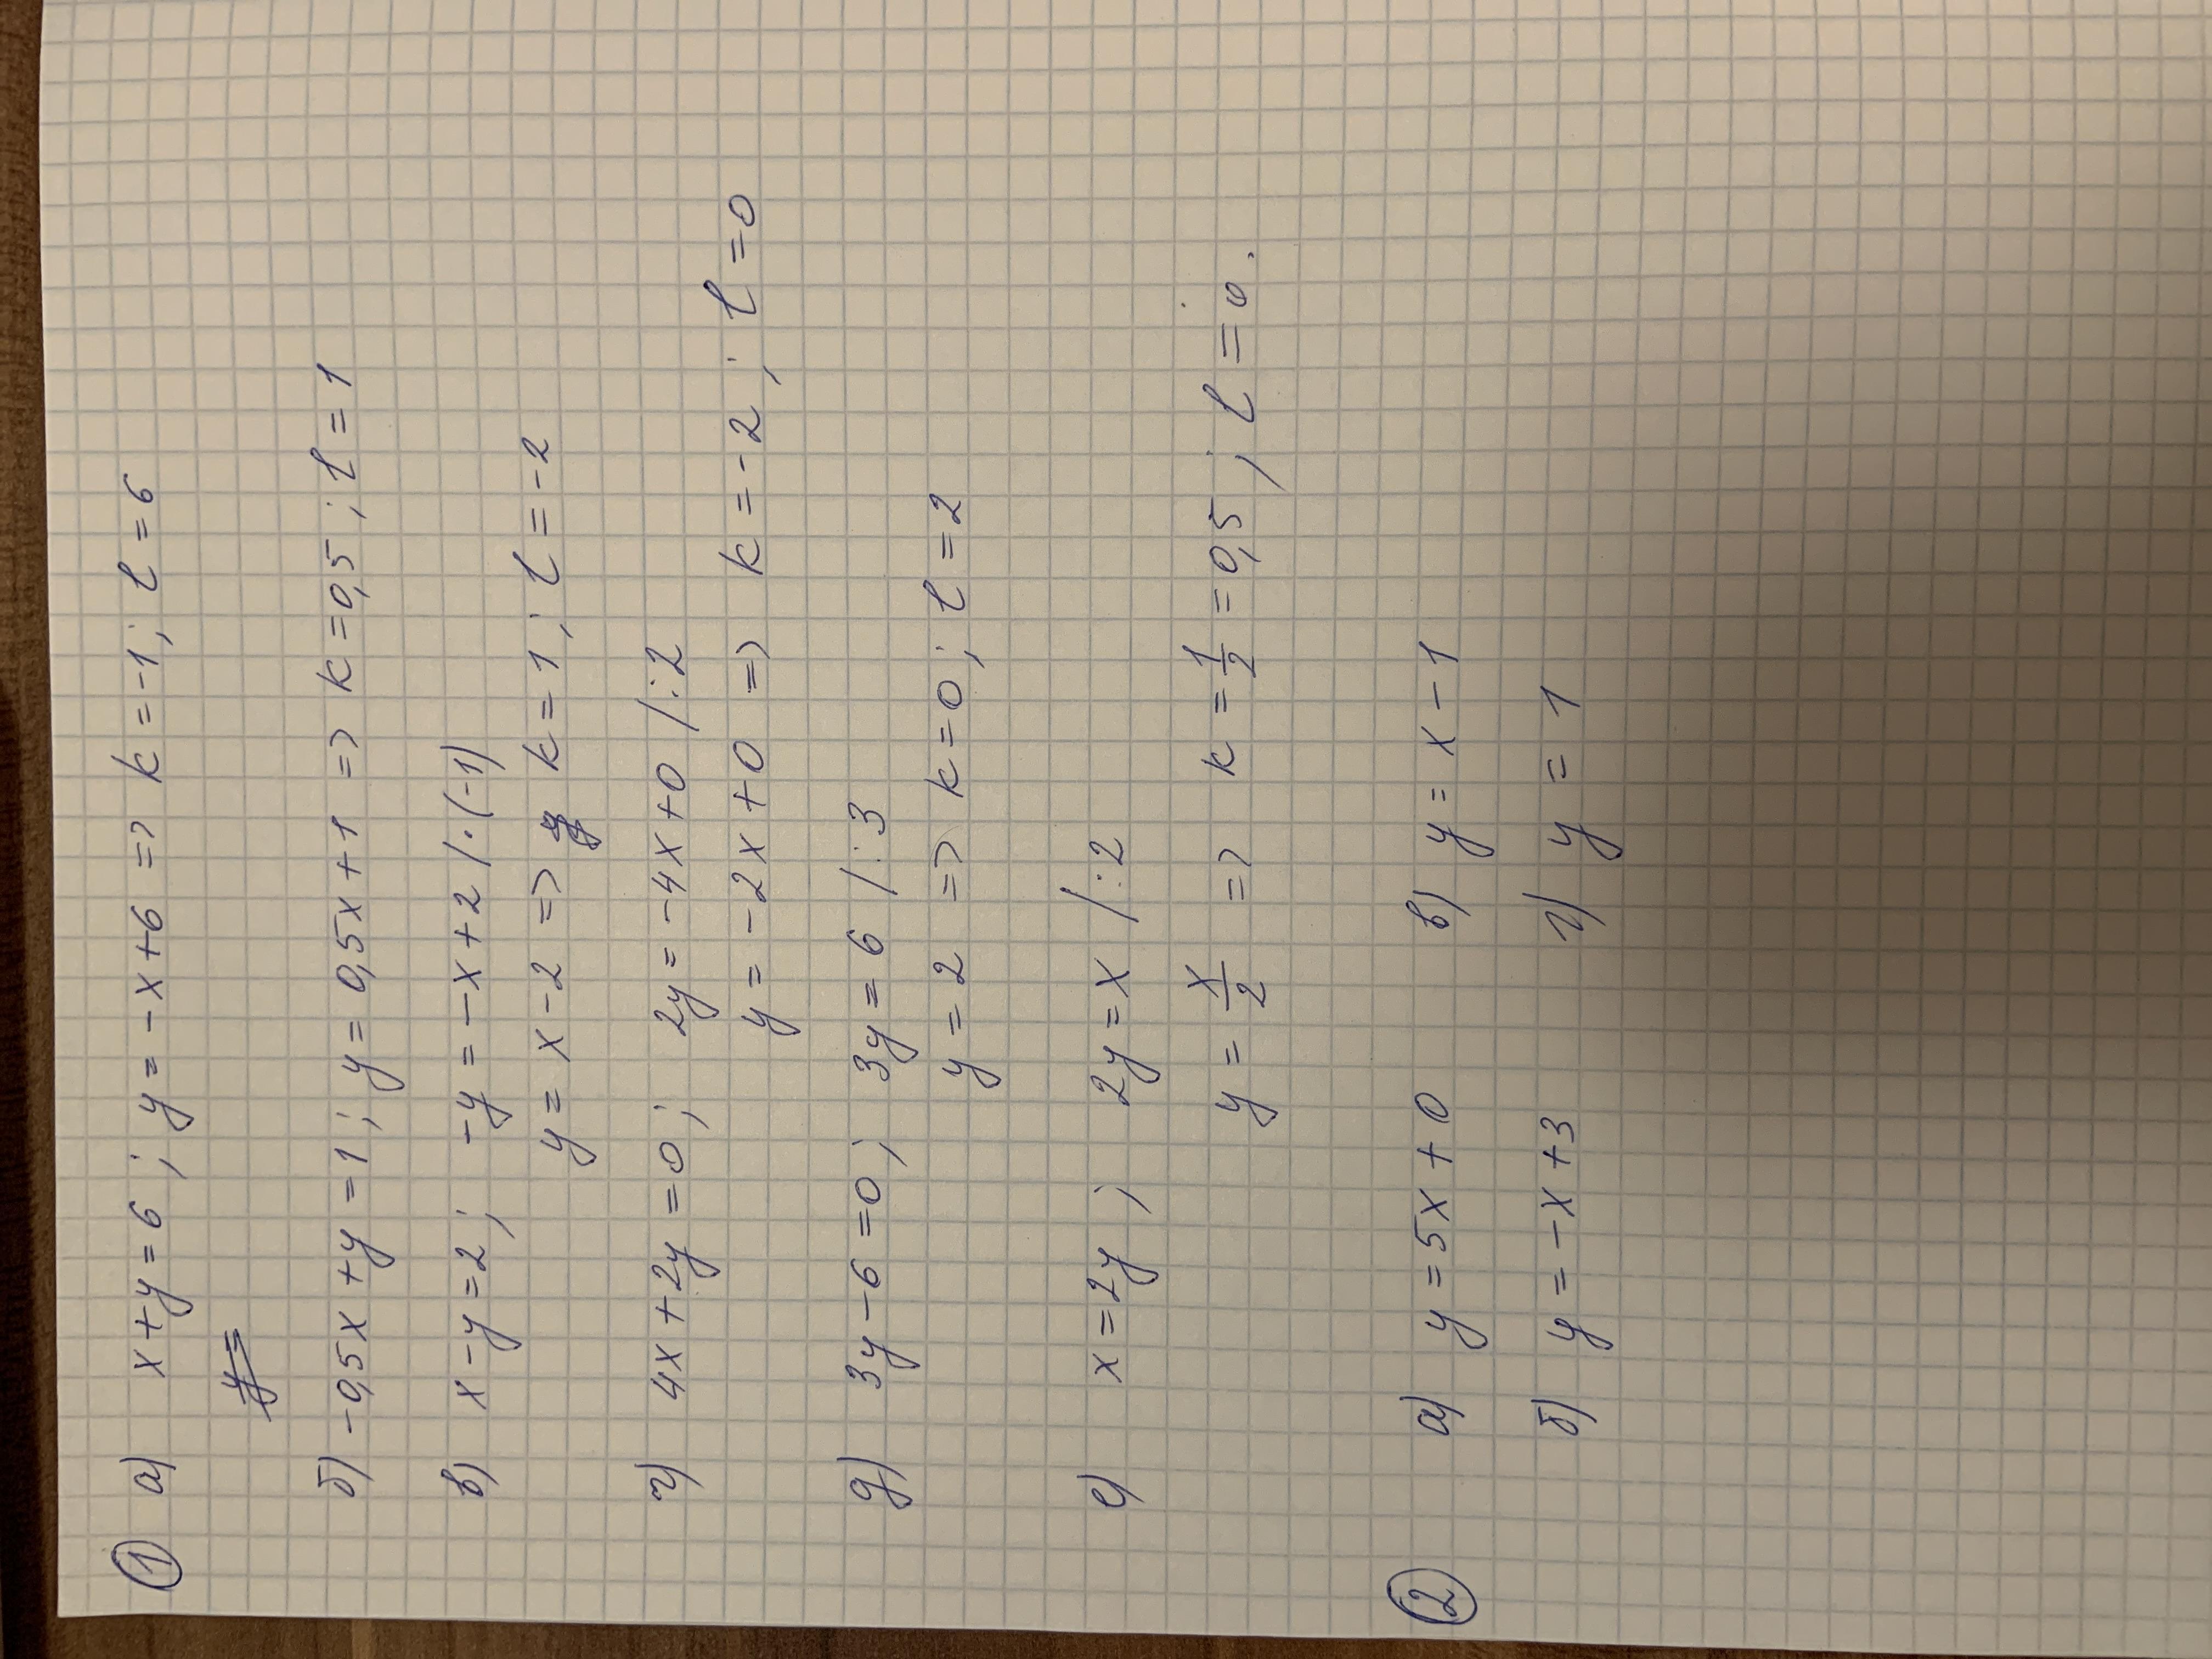 ① а) x+y=6 ; y=-x+6 => k=-1; l=6
y=
б) -0,5x+y=1 ; y=0,5x+1 => k=0,5 ; l=1
в) x-y=2 ; -y=-x+2 /·(-1)
y=x-2 => k=1 ; l=-2
г) 4x+2y=0 ; 2y=-4x+0 /:2
y=-2x+0 => k=-2 ; l=0
д) 3y-6=0 ; 3y=6 /:3
y=2 => k=0 ; l=2
е) x=2y ; 2y=x /:2
y=x/2 => k=1/2=0,5 ; l=0.
② а) y=5x+0 в) y=x-1
б) y=-x+3 г) y=1